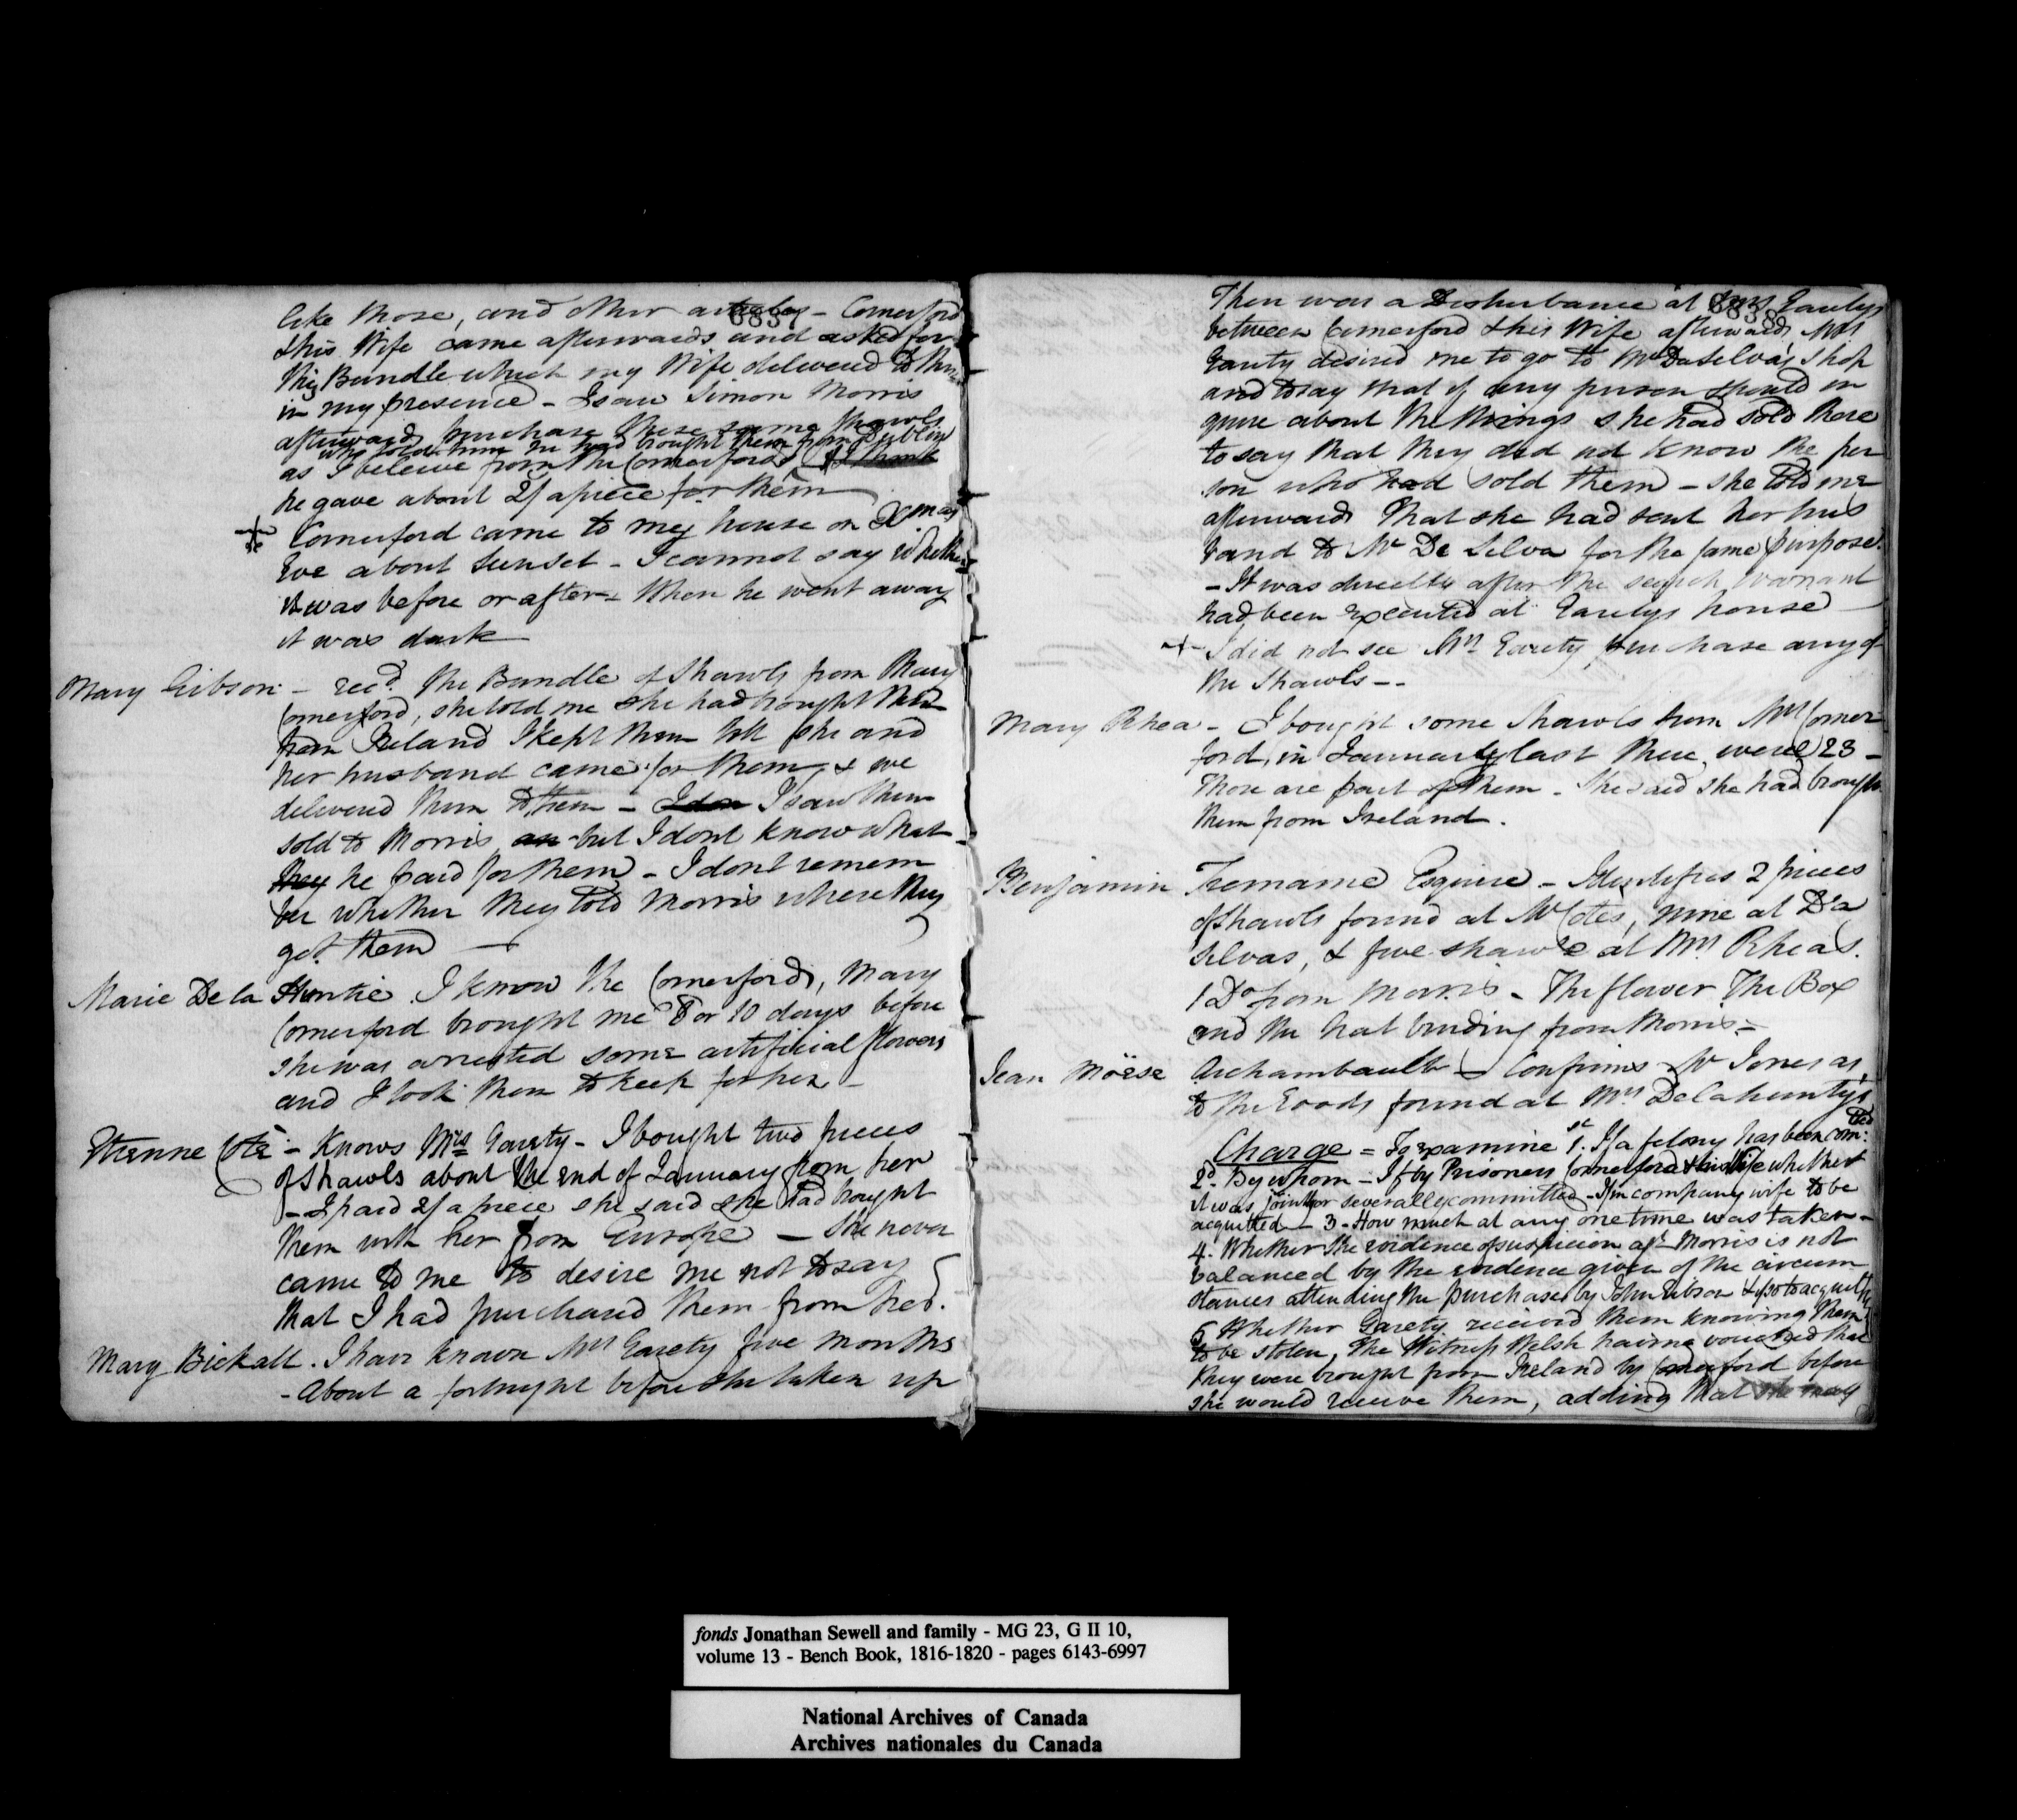 6837
like those, and other articles - Comerford
& his Wife came afterwards and asked for
this Bundle which my Wife delivered to them
in my presence - I saw Simon Morris
afterwards purchase these same shawls
who told him he had brought them from Dublin
as I beleive from the Comerfords & I think
he gave about 2/ apiece for them
Comerford came to my house on Xmas
Eve about sunset - I cannot say whether
it was before or after - When he went away
it was dark
Mary Gibson - recd. the Bundle of Shawls from Mary
Comerford, she told me she had brought them
from Ireland I kept them till she and
her husband came for them, & we
delivered them to them - I saw them
sold to Morris, but I dont know what
they he paid for them - I dont remem
ber whether they told Morris where they
got them
Marie De la Huntie. I know the Comerfords, Mary
Comerford brought me 8 or 10 days before
she was arrested some artificial flowers
and I took them to keep for her -
Etienne Coté - Knows Mrs Garety - I bought two pieces
of Shawls about the end of January from her
- I paid 2/ a piece she said she had brought
them with her from Europe - She never
came to me to desire me not to say
that I had purchased them from her.
Mary Bickall. I have known Mrs Garety five months
- About a fortnight before she taken up
6838
There was a Disturbance at Mrs Garetys
between Comerford & his Wife afterwards Mrs
Garety desired me to go to Mr DaSelvas Shop
and to say that if any person should en
quire about the things she had sold there
to say that they did not know the per
son who had sold them - she told me
afterwards that she had sent her hus
band to Mr De Silva for the same purpose.
- It was directly after the search warrant
had been executed at Garetys house
I did not see Mrs Garety purchase any of
the Shawls - -
Mary Rhea - I bought some shawls from Mrs Comer
ford, in January last there were 23 -
Those are part of them - She said she had brought
them from Ireland.
Benjamin Tremaine Esquire - Identifies 2 pieces
of shawls found at Mr Cotes, nine at Da
Silvas, & five shawls at Mrs Rheas.
1 Do from Morris - The flower The Box
and the hat binding from Morris -
Jean Möese Archambault - Confirms Mr Jones as
to the Goods found at Mrs Delahuntys
Charge = To examine 1st. If a felony has been com:
tted
2d. By whom - If by Prisoners Comerford & his Wife whether
it was jointly or severally committed - If in company wife to be
acquitted - 3 - How much at any one time was taken -
4. Whether the evidence of suspicion agt Morris is not
balanced by the evidence given of the circum
stances attending the purchase by John Gibson & if so to acquit him
5 Whether Garety received them knowing them
to be stolen, the Witness Welsh having vouched that
they were brought from Ireland by Comerford before
she would receive them, adding that she may
fonds Jonathan Sewell and family - MG 23, G II 10,
volume 13 - Bench Book, 1816-1820 - pages 6143-6997
National Archives of Canada
Archives nationales du Canada